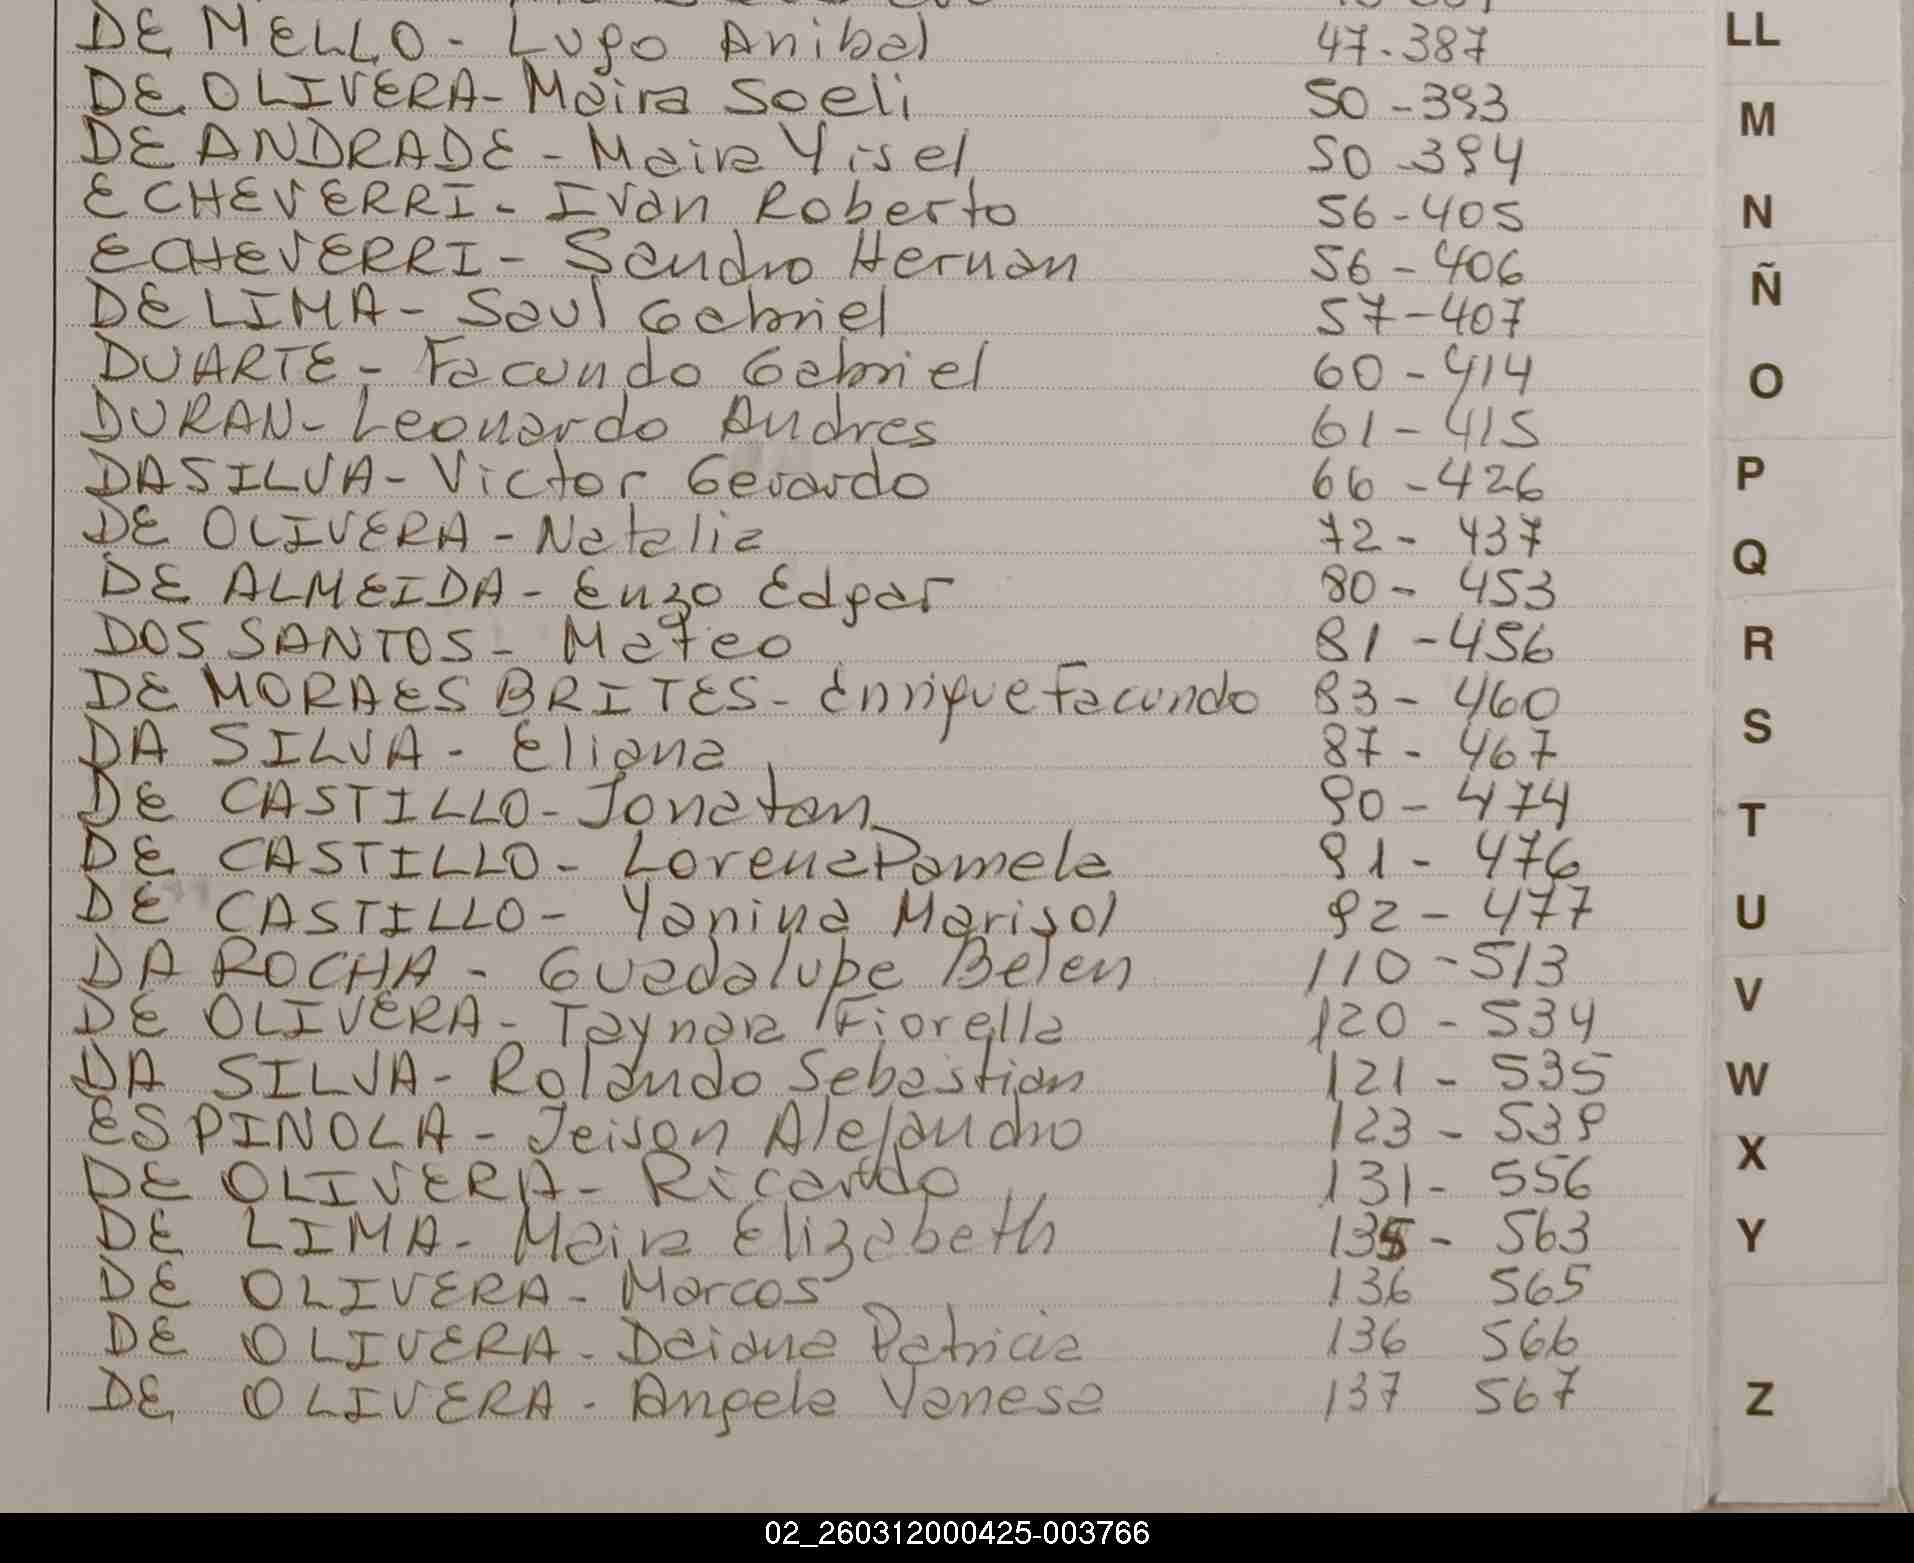 DE MELLO - Lugo Anibal 47-387
DE OLIVERA - Maira Soeli 50-393
DE ANDRADE - Maira Yisel 50-394
ECHEVERRI - Ivan Roberto 56-405
ECHEVERRI - Sandro Hernan 56-406
DE LIMA - Saul Gabriel 57-407
DUARTE - Facundo Gabriel 60-414
DURAN - Leonardo Andres 61-415
DASILVA - Victor Gerardo 66-426
DE OLIVERA - Natalia 72-437
DE ALMEIDA - Enzo Edgar 80-453
DOS SANTOS - Mateo 81-456
DE MORAES BRITES - Enrique Facundo 83-460
DA SILVA - Eliana 87-467
DE CASTILLO - Jonatan 90-474
DE CASTILLO - Lorena Pamela 91-476
DE CASTILLO - Yanina Marisol 92-477
DA ROCHA - Guadalupe Belen 110-513
DE OLIVERA - Taynara Fiorella 120-534
DA SILVA - Rolando Sebastian 121-535
ESPINOLA - Jeison Alejandro 123-539
DE OLIVERA - Ricardo 131-556
DE LIMA - Maira Elizabeth 135-563
DE OLIVERA - Marcos 136 565
DE OLIVERA - Daiana Patricia 136 566
DE OLIVERA - Angela Vanesa 137 567
LL
M
N
Ñ
O
P
Q
R
S
T
U
V
W
X
Y
Z
02_260312000425-003766